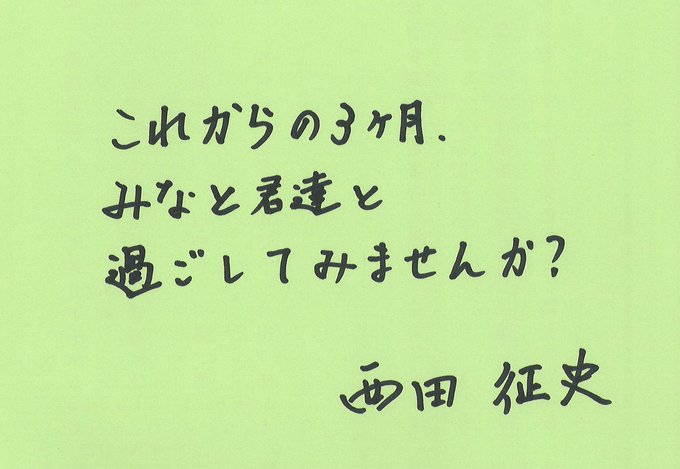 これからの3ヶ月.
みなと君達と
過ごしてみませんか?
西田 征史